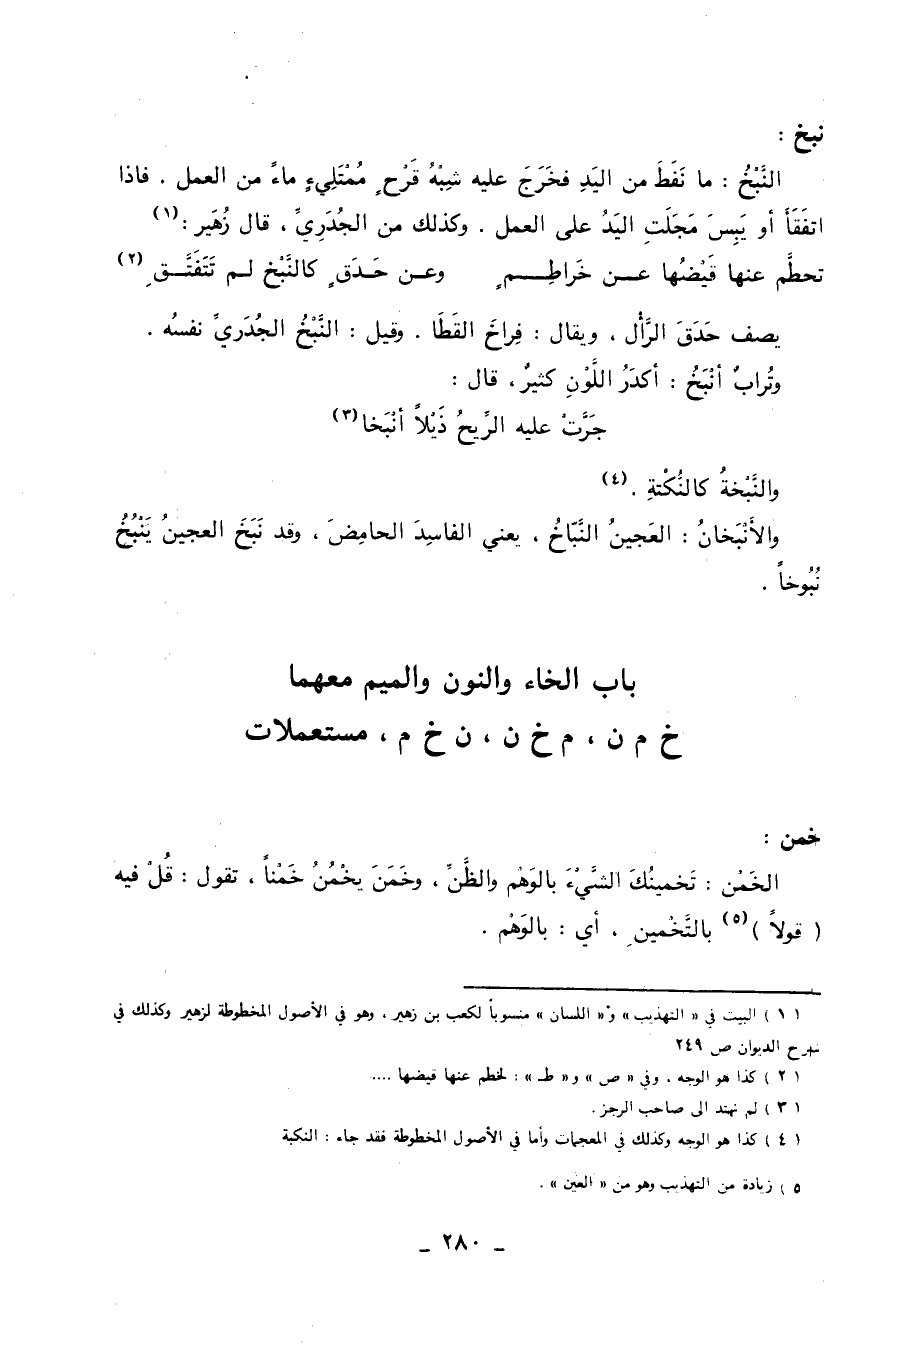 نبخ :
النَّبْخُ : ما نَفَطَ من اليَدِ فخَرَجَ عليه شِبْهُ قَرْحٍ مُمْتَلِيءٍ ماءً من العمل . فاذا
اتفَقَأَ أو يَبِسَ مَجَلَتِ اليَدُ على العمل . وكذلك من الجُدَرِيِّ ، قال زُهَير :(١)
تحطَّم عنها قَيْضُها عن خَراطِمٍ وعن حَدَقٍ كالنَّبْخ لم تَتَفَتَّقِ(٢)
يصف حَدَقَ الرَّأْل ، ويقال : فِراخَ القَطَا . وقيل : النَّبْخُ الجُدَريُّ نفسُه .
وتُرابٌ أنْبَخُ : أكدَرُ اللَّوْنِ كثيرٌ ، قال :
جَرَّتْ عليه الرِّيحُ ذَيْلاً أنْبَخا(٣)
والنَّبْخةُ كالنُّكْتةِ .(٤)
والأَنْبَخانُ : العَجينُ النَّبّاخُ ، يعني الفاسِدَ الحامِضَ ، وقد نَبَخَ العجينُ يَنْبُخُ
نُبُوخاً .
باب الخاء والنون والميم معهما
خ م ن ، م خ ن ، ن خ م ، مستعملات
خمن :
الخَمْن : تَخمينُكَ الشَّيْءَ بالوَهْم والظَّنِّ ، وخَمَنَ يخْمُنُ خَمْناً ، تقول : قُلْ فيه
( قولاً )(٥) بالتَّخْمينِ ، أي : بالوَهْم .
( ١ ) البيت في « التهذيب » و« اللسان » منسوباً لكعب بن زهير ، وهو في الأصول المخطوطة لزهير وكذلك في
شرح الديوان ص ٢٤٩
( ٢ ) كذا هو الوجه . وفي « ص » و« ط » : لخطم عنها قيضها ....
( ٣ ) لم نهتد الى صاحب الرجز .
( ٤ ) كذا هو الوجه وكذلك في المعجمات وأما في الأصول المخطوطة فقد جاء : النكبة
٥ ) زيادة من التهذيب وهو من « العين » .
ـ ٢٨٠ ـ